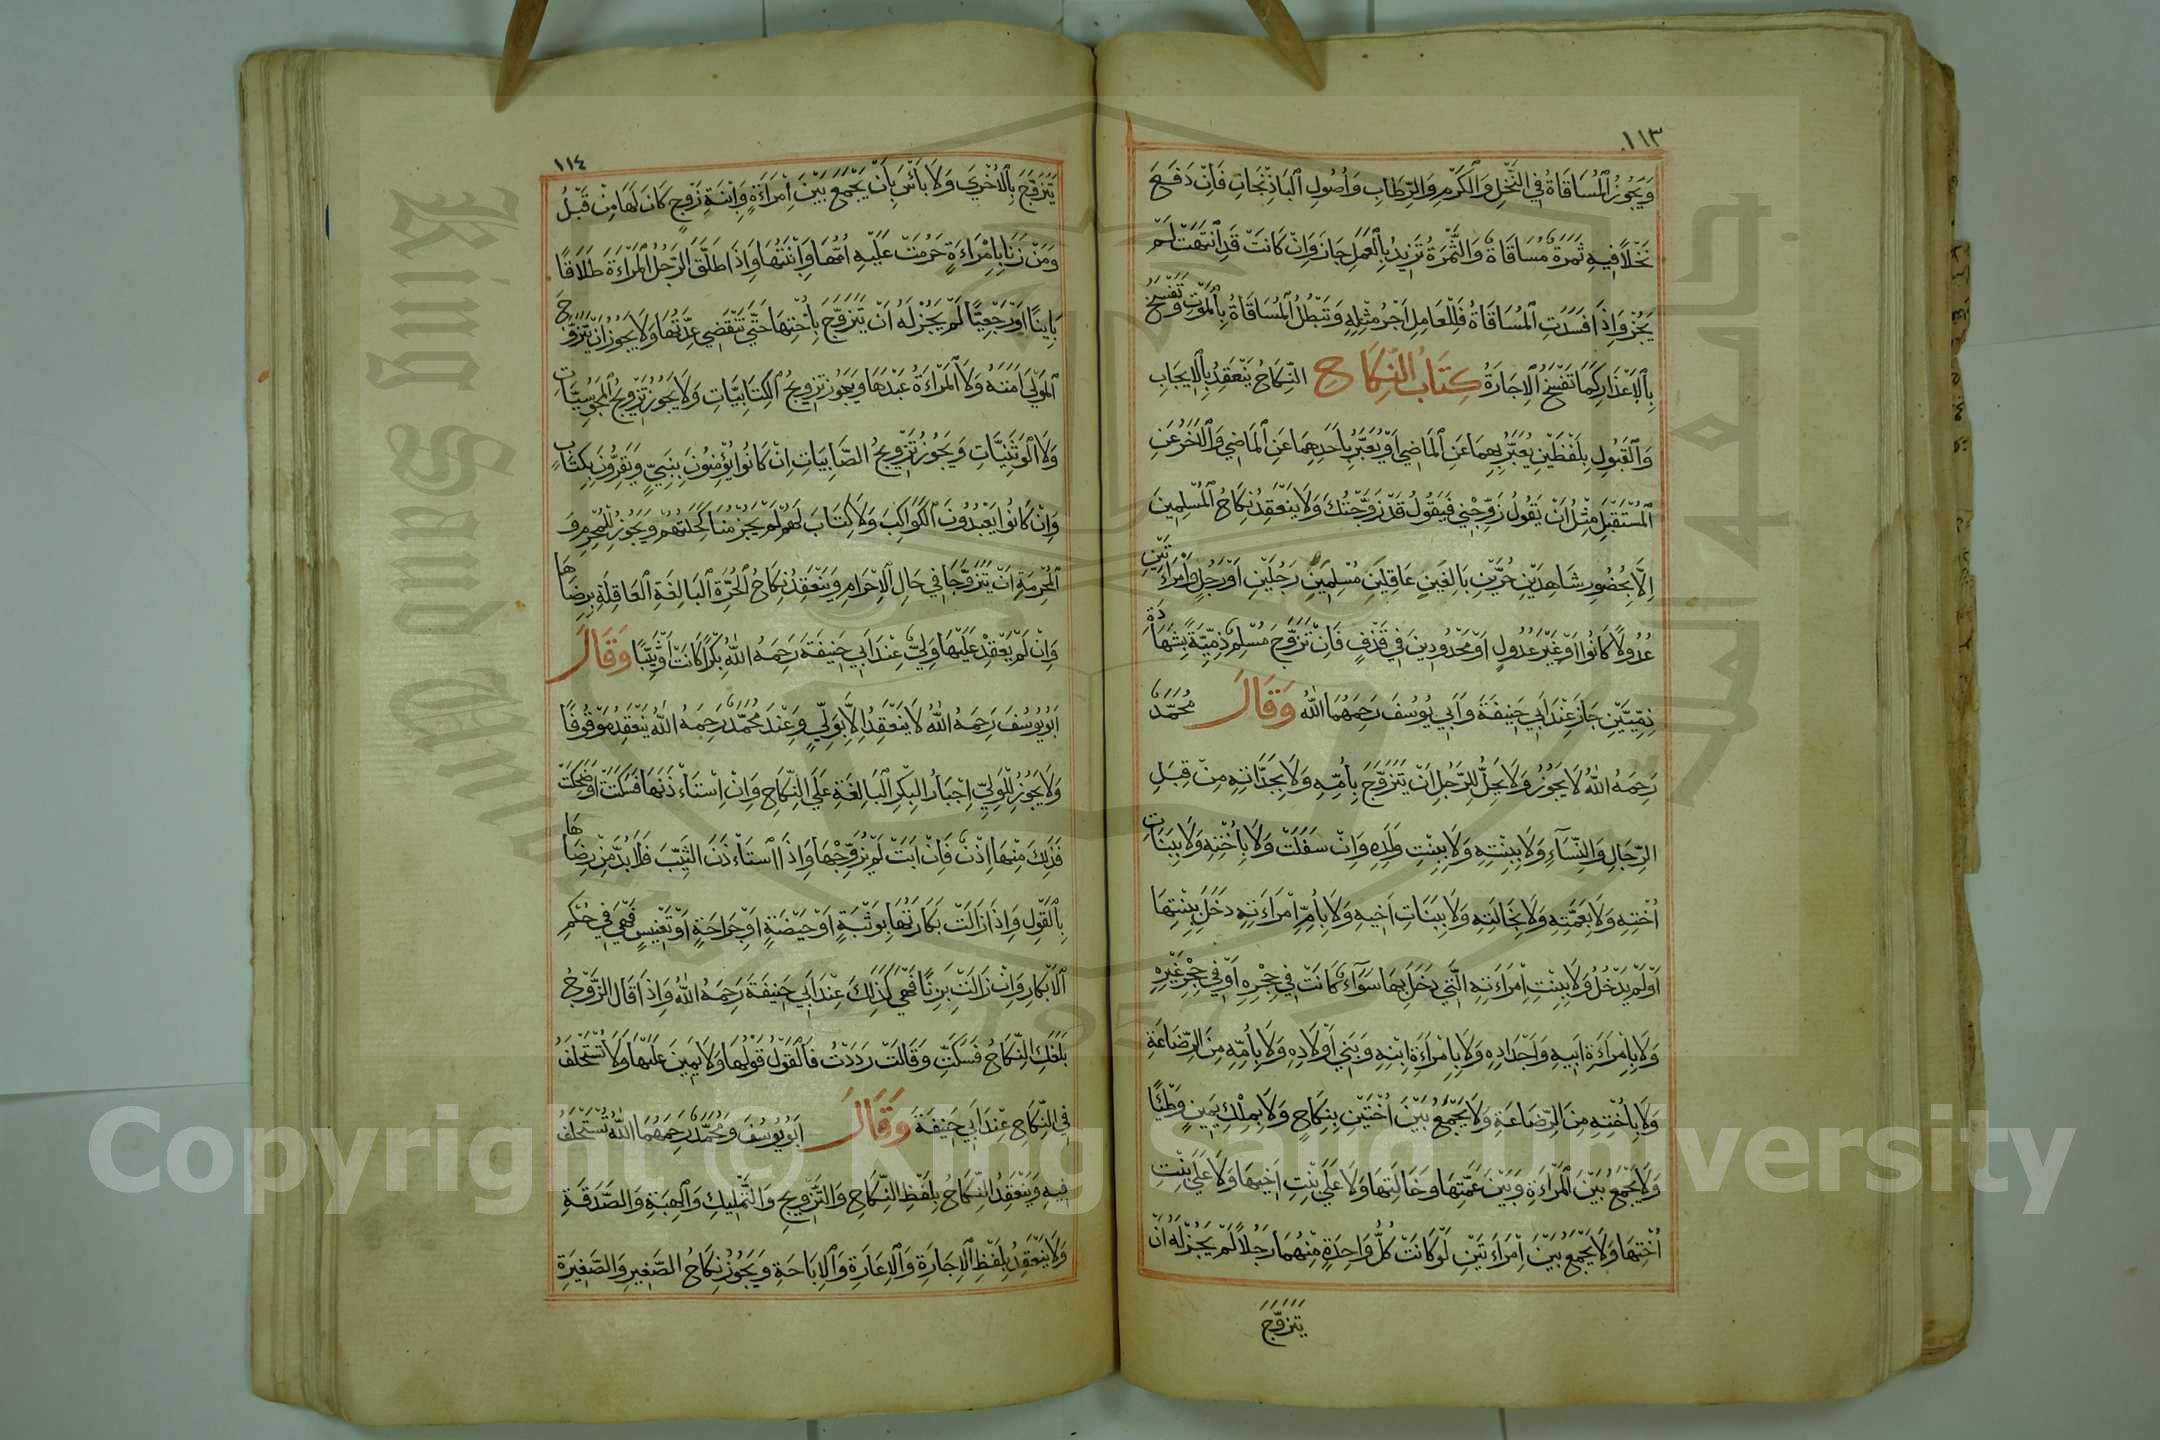 ١١٣
وَيَجُوزُ الْمُسَاقَاةُ فِي النَّخْلِ وَالْكَرْمِ وَالرِّطَابِ وَاُصُولِ الْبَاذِنْجَانِ فَاِنْ دَفَعَ
نَخْلًا فِيهِ ثَمَرَةٌ مُسَاقَاةً وَالثَّمَرَةُ تَزِيدُ بِالْعَمَلِ جَازَ وَاِنْ كَانَتْ قَدِ انْتَهَتْ لَمْ
يَجُزْ وَاِذَا فَسَدَتِ الْمُسَاقَاةُ فَلِلْعَامِلِ اَجْرُ مِثْلِهِ وَتَبْطُلُ الْمُسَاقَاةُ بِالْمَوْتِ وَتَفْسَخُ
بِالْاَعْذَارِ كَمَا تَفْسَخُ الْاِجَارَةُ كِتَابُ النِّكَاحِ النِّكَاحُ يَنْعَقِدُ بِالْاِيجَابِ
وَالْقَبُولِ بِلَفْظَيْنِ يُعَبَّرُ بِهِمَا عَنِ الْمَاضِي اَوْ يُعَبَّرُ بِاَحَدِهِمَا عَنِ الْمَاضِي وَالْاٰخَرُ عَنِ
الْمُسْتَقْبَلِ مِثْلُ اَنْ يَقُولَ زَوِّجْنِي فَيَقُولُ قَدْ زَوَّجْتُكَ وَلَا يَنْعَقِدُ نِكَاحُ الْمُسْلِمِينَ
اِلَّا بِحُضُورِ شَاهِدَيْنِ حُرَّيْنِ بَالِغَيْنِ عَاقِلَيْنِ مُسْلِمَيْنِ رَجُلَيْنِ اَوْ رَجُلٍ وَامْرَاَتَيْنِ
عُدُولًا كَانُوا اَوْ غَيْرَ عُدُولٍ اَوْ مَحْدُودِينَ فِي قَذْفٍ فَاِنْ تَزَوَّجَ مُسْلِمٌ ذِمِّيَّةً بِشَهَادَةِ
ذِمِّيَّيْنِ جَازَ عِنْدَ اَبِي حَنِيفَةَ وَاَبِي يُوسُفَ رَحِمَهُمَا اللّٰهُ وَقَالَ مُحَمَّدٌ
رَحِمَهُ اللّٰهُ لَا يَجُوزُ وَلَا يَحِلُّ لِلرَّجُلِ اَنْ يَتَزَوَّجَ بِاُمِّهِ وَلَا بِجَدَّاتِهِ مِنْ قِبَلِ
الرِّجَالِ وَالنِّسَآءِ وَلَا بِبِنْتِهِ وَلَا بِبِنْتِ وَلَدِهِ وَاِنْ سَفَلَتْ وَلَا بِاُخْتِهِ وَلَا بِبَنَاتِ
اُخْتِهِ وَلَا بِعَمَّتِهِ وَلَا بِخَالَتِهِ وَلَا بِبَنَاتِ اَخِيهِ وَلَا بِاُمِّ امْرَاَتِهِ دَخَلَ بِبِنْتِهَا
اَوْ لَمْ يَدْخُلْ وَلَا بِبِنْتِ اِمْرَاَتِهِ الَّتِي دَخَلَ بِهَا سَوَآءٌ كَانَتْ فِي حِجْرِهِ اَوْ فِي حِجْرِ غَيْرِهِ
وَلَا بِاِمْرَاَةِ اَبِيهِ وَاَجْدَادِهِ وَلَا بِاِمْرَاَةِ اِبْنِهِ وَبَنِي اَوْلَادِهِ وَلَا بِاُمِّهِ مِنَ الرَّضَاعَةِ
وَلَا بِاُخْتِهِ مِنَ الرَّضَاعَةِ وَلَا يَجْمَعُ بَيْنَ اُخْتَيْنِ بِنِكَاحٍ وَلَا بِمِلْكِ يَمِينٍ وَطْئًا
وَلَا يَجْمَعُ بَيْنَ الْمَرْاَةِ وَبَيْنَ عَمَّتِهَا وَخَالَتِهَا وَلَا عَلَى بِنْتِ اَخِيهَا وَلَا عَلَى بِنْتِ
اُخْتِهَا وَلَا يَجْمَعُ بَيْنَ اِمْرَاَتَيْنِ لَوْ كَانَتْ كُلُّ وَاحِدَةٍ مِنْهُمَا رَجُلًا لَمْ يَجُزْ لَهُ اَنْ
يَتَزَوَّجَ
١١٤
يَتَزَوَّجَ بِالْاُخْرَى وَلَا بَأْسَ بِاَنْ يَجْمَعَ بَيْنَ اِمْرَاَةٍ وَابْنَةِ زَوْجٍ كَانَ لَهَا مِنْ قَبْلُ
وَمَنْ زَنَا بِاِمْرَاَةٍ حَرُمَتْ عَلَيْهِ اُمُّهَا وَابْنَتُهَا وَاِذَا طَلَّقَ الرَّجُلُ الْمَرْاَةَ طَلَاقًا
بَايِنًا اَوْ رَجْعِيًّا لَمْ يَجُزْ لَهُ اَنْ يَتَزَوَّجَ بِاُخْتِهَا حَتّٰى تَنْقَضِيَ عِدَّتُهَا وَلَا يَجُوزُ اَنْ يَتَزَوَّجَ
الْمَوْلٰى اَمَتَهُ وَلَا الْمَرْاَةُ عَبْدَهَا وَيَجُوزُ تَزْوِيجُ الْكِتَابِيَّاتِ وَلَا يَجُوزُ تَزْوِيجُ الْمَجُوسِيَّاتِ
وَلَا الْوَثَنِيَّاتِ وَيَجُوزُ تَزْوِيجُ الصَّابِيَاتِ اِنْ كَانُوا يُؤْمِنُونَ بِنَبِيٍّ وَيَقِرُّونَ بِكِتَابٍ
وَاِنْ كَانُوا يَعْبُدُونَ الْكَوَاكِبَ وَلَا كِتَابَ لَهُمْ لَمْ يَجُزْ مُنَاكَحَتُهُمْ وَيَجُوزُ لِلْمُحْرِمِ وَ
الْمُحْرِمَةِ اَنْ يَتَزَوَّجَا فِي حَالِ الْاِحْرَامِ وَيَنْعَقِدُ نِكَاحُ الْحُرَّةِ الْبَالِغَةِ الْعَاقِلَةِ بِرِضَاهَا
وَاِنْ لَمْ يَعْقِدْ عَلَيْهَا وَلِيٌّ عِنْدَ اَبِي حَنِيفَةَ رَحِمَهُ اللّٰهُ بِكْرًا كَانَتْ اَوْ ثَيِّبًا وَقَالَ
اَبُو يُوسُفَ رَحِمَهُ اللّٰهُ لَا يَنْعَقِدُ اِلَّا بِوَلِيٍّ وَعِنْدَ مُحَمَّدٍ رَحِمَهُ اللّٰهُ يَنْعَقِدُ مَوْقُوفًا
وَلَا يَجُوزُ لِلْوَلِيِّ اِجْبَارُ الْبِكْرِ الْبَالِغَةِ عَلَى النِّكَاحِ وَاِنْ اِسْتَأْذَنَهَا فَسَكَتَتْ اَوْ ضَحِكَتْ
فَذٰلِكَ مِنْهَا اِذْنٌ فَاِنْ اَبَتْ لَمْ يُزَوِّجْهَا وَاِذَا اسْتَأْذَنَ الثَّيِّبَ فَلَا بُدَّ مِنْ رِضَاهَا
بِالْقَوْلِ وَاِذَا زَالَتْ بَكَارَتُهَا بِوَثْبَةٍ اَوْ حَيْضَةٍ اَوْ جِرَاحَةٍ اَوْ تَعْنِيسٍ فَهِيَ فِي حُكْمِ
الْاَبْكَارِ وَاِنْ زَالَتْ بِزِنًا فَهِيَ كَذٰلِكَ عِنْدَ اَبِي حَنِيفَةَ رَحِمَهُ اللّٰهُ وَاِذَا قَالَ الزَّوْجُ
بَلَغَكِ النِّكَاحُ فَسَكَتِّ وَقَالَتْ رَدَدْتُ فَالْقَوْلُ قَوْلُهَا وَلَا يَمِينَ عَلَيْهَا وَلَا تُسْتَحْلَفُ
فِي النِّكَاحِ عِنْدَ اَبِي حَنِيفَةَ وَقَالَ اَبُو يُوسُفَ وَمُحَمَّدٌ رَحِمَهُمَا اللّٰهُ تُسْتَحْلَفُ
فِيهِ وَيَنْعَقِدُ النِّكَاحُ بِلَفْظِ النِّكَاحِ وَالتَّزْوِيجِ وَالتَّمْلِيكِ وَالْهِبَةِ وَالصَّدَقَةِ
وَلَا يَنْعَقِدُ بِلَفْظِ الْاِجَارَةِ وَالْاِعَارَةِ وَالْاِبَاحَةِ وَيَجُوزُ نِكَاحُ الصَّغِيرِ وَالصَّغِيرَةِ
King Saud University
جامعة الملك سعود
1957
Copyright © King Saud University